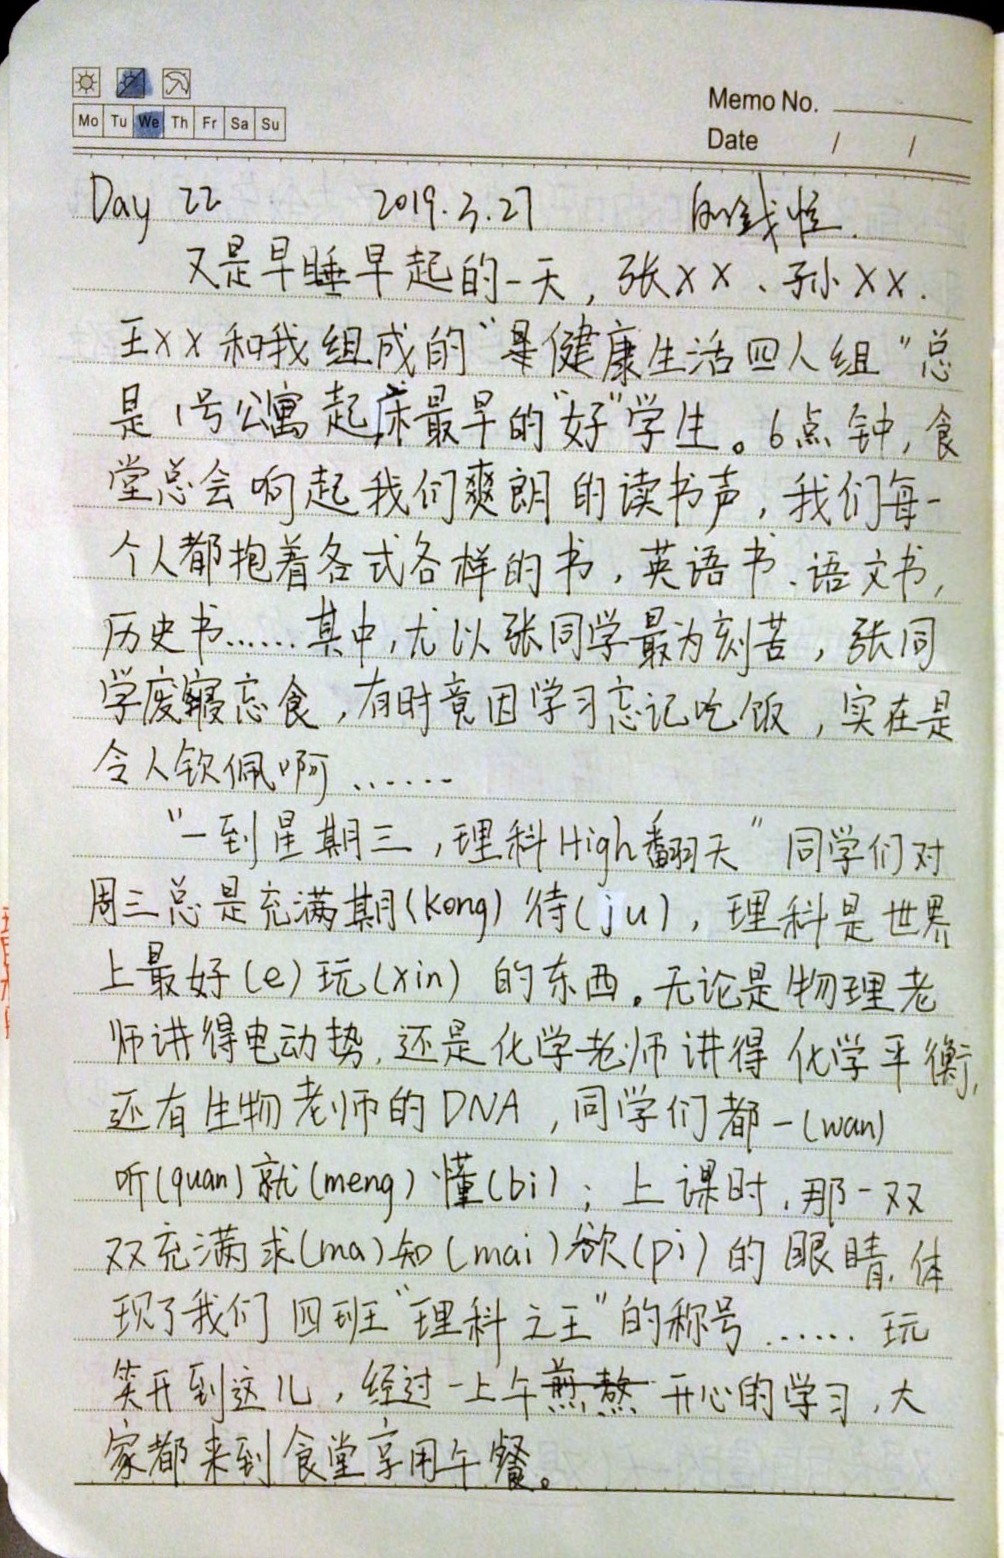 Mo Tu We Th Fr Sa Su
Memo No.
Date / /
Day 22 2019.3.27
又是早睡早起的一天，张XX、孙XX、
王XX和我组成的“健康生活四人组”总
是1号公寓起床最早的“好”学生。6点钟，食
堂总会响起我们爽朗的读书声，我们每一
个人都抱着各式各样的书，英语书、语文书，
历史书……其中，尤以张同学最为刻苦，张同
学废寝忘食，有时竟因学习忘记吃饭，实在是
令人钦佩啊……
“一到星期三，理科High翻天”同学们对
周三总是充满期(kong)待(ju)，理科是世界
上最好(e)玩(xin)的东西。无论是物理老
师讲得电动势，还是化学老师讲得化学平衡，
还有生物老师的DNA，同学们都一(wan)
听(quan)就(meng)懂(bi)；上课时，那一双
双充满求(ma)知(mai)欲(pi)的眼睛，体
现了我们四班“理科之王”的称号……玩
笑开到这儿，经过一上午煎熬开心的学习，大
家都来到食堂享用午餐。